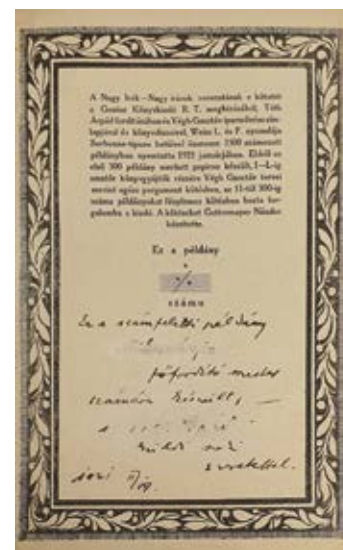 A Nagy Irók—Nagy írások sorozatának e kötetét
a Genius Könyvkiadó R. T. megbízásából, Tóth
Árpád fordításában és Végh Gusztáv iparművész cím-
lapjával és könyvdíszeivel, Weiss L. és F. nyomdája
Sorbonne-tipusu betüivel összesen 1500 számozott
példányban nyomtatta 1921 juniusában. Ebből az
első 300 példány merített papírra készült, I—L-ig
amatőr könyvgyüjtők részére Végh Gusztáv tervei
szerint egész pergament kötésben, az 51-től 300-ig
számu példányokat félselyem kötésben hozta for-
galomba a kiadó. A kötéseket Gottermayer Nándor
készítette.
Ez a példány
számu
Ez a számfeletti példány
főfordító mester
számára készült, —
a
küldi neki
szeretettel.